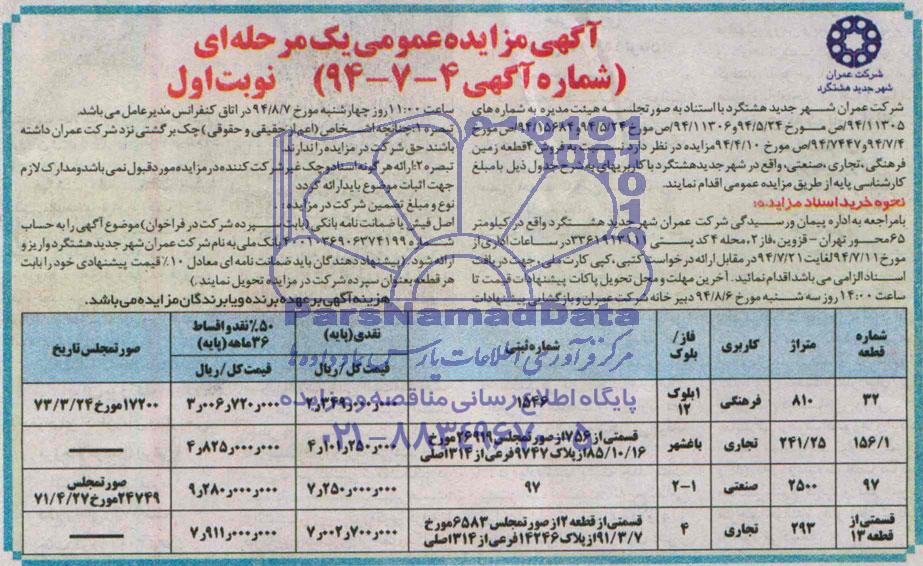 آگهی مزایده عمومی یک مرحله‌ای
(شماره آگهی ۴-۷-۹۴) نوبت اول
شرکت عمران
شهر جدید هشتگرد
شرکت عمران شهر جدید هشتگرد با استناد به صورتجلسه هیئت مدیره به شماره های
۹۴/۱۱۳۰۵/ص مورخ ۹۴/۵/۲۴ و ۹۴/۱۱۳۰۶/ص مورخ ۹۴/۵/۲۴ و ۹۴/۱۵۶۸۴/ص مورخ
۹۴/۷/۴ و ۹۴/۷۴۴۷/ص مورخ ۹۴/۴/۱۰ مزایده در نظر دارد نسبت به فروش ۴ قطعه زمین
فرهنگی، تجاری، صنعتی، واقع در شهر جدید هشتگرد با کاربریهای به شرح جدول ذیل با مبلغ
کارشناسی پایه از طریق مزایده عمومی اقدام نمایند.
نحوه خرید اسناد مزایده:
با مراجعه به اداره پیمان و رسیدگی شرکت عمران شهر جدید هشتگرد واقع در کیلومتر
۶۵ محور تهران - قزوین، فاز ۲، محله ۴ کد پستی ۳۳۶۱۹۱۳۱۱۱ در ساعات اداری از
مورخ ۹۴/۷/۱۱ لغایت ۹۴/۷/۲۱ در مقابل ارائه درخواست کتبی، کپی کارت ملی، جهت دریافت
اسناد الزامی می باشد اقدام نمائید. آخرین مهلت و محل تحویل پاکات پیشنهادات قیمت تا
ساعت ۱۴:۰۰ روز سه شنبه مورخ ۹۴/۸/۶ دبیر خانه شرکت عمران و بازگشایی پیشنهادات
ساعت ۱۱:۰۰ روز چهارشنبه مورخ ۹۴/۸/۷ در اتاق کنفرانس مدیر عامل می باشد.
تبصره ۱: چنانچه اشخاص (اعم از حقیقی و حقوقی) چک برگشتی نزد شرکت عمران داشته
باشند حق شرکت در مزایده را ندارند.
تبصره ۲: ارائه هر گونه اسناد و چک غیر شرکت کننده در مزایده مورد قبول نمی باشد و مدارک لازم
جهت اثبات موضوع باید ارائه گردد
نوع و مبلغ تضمین شرکت در مزایده:
اصل فیش یا ضمانت نامه بانکی (بابت سپرده شرکت در فراخوان) موضوع آگهی را به حساب
شماره ۴۰۰۱۰۳۶۹۰۶۳۷۴۱۹۹ بانک ملی به نام شرکت عمران شهر جدید هشتگرد واریز و
ارائه شود. (پیشنهاد دهندگان باید ضمانت نامه ای معادل ۱۰٪ قیمت پیشنهادی خود را بابت
هر قطعه بعنوان سپرده شرکت در مزایده تحویل نمایند.)
هزینه آگهی بر عهده برنده و یا برندگان مزایده می باشد.
شماره قطعه متراژ کاربری فاز/ بلوک شماره ثبتی نقدی (پایه) قیمت کل/ ریال ۵۰٪ نقد و اقساط ۳۶ ماهه (پایه) قیمت کل/ ریال صورتمجلس تاریخ
۳۲ ۸۱۰ فرهنگی ۱ بلوک ۱۲ ۱۵۴۶ ۳ر۰۰۶ر۷۲۰ر۰۰۰ ۱۷۲۰۰ مورخ ۷۳/۳/۲۴
۱۵۶/۱ ۲۴۱/۲۵ تجاری باغشهر قسمتی از ۷۵۶ از صورتمجلس ۲۶۹۱۹ مورخ ۸۵/۱۰/۱۶ از پلاک ۹۷۴۷ فرعی از ۳۱۴ اصلی ۴ر۱۰۱ر۲۵۰ر۰۰۰ ۴ر۸۲۵ر۰۰۰ر۰۰۰ ——
۹۷ ۲۵۰۰ صنعتی ۲-۱ ۹۷ ۷ر۲۵۰ر۰۰۰ر۰۰۰ ۹ر۲۸۰ر۰۰۰ر۰۰۰ صورتمجلس ۲۴۷۴۹ مورخ ۷۱/۴/۲۷
قسمتی از قطعه ۱۳ ۲۹۳ تجاری ۴ قسمتی از قطعه ۲ از صورتمجلس ۶۵۸۳ مورخ ۹۱/۳/۷ از پلاک ۱۴۲۴۶ فرعی از ۳۱۴ اصلی ۷ر۰۰۲ر۷۰۰ر۰۰۰ ۷ر۹۱۱ر۰۰۰ر۰۰۰ ——
ParsNamadData
مرکز فرآوری اطلاعات پارس نماد داده ها
پایگاه اطلاع رسانی مناقصه و مزایده
۰۲۱-۸۸۳۴۹۶۷۰-۵